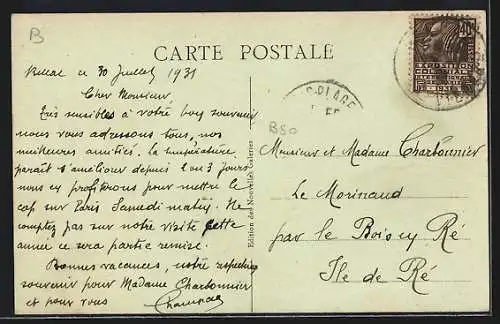 B
CARTE POSTALE
Bellac ce 30 Juillet 1931
Cher Monsieur
Très sensibles à votre bon souvenir
nous vous adressons tous, nos
meilleures amitiés. la température
paraît s'améliorer depuis 2 ou 3 jours
nous en profiterons pour mettre le
cap sur Paris Samedi matin. Ne
comptez pas sur notre visite cette
année ce sera partie remise.
Bonnes vacances, notre respectueux
souvenir pour Madame Charbonnier
et pour vous
Edition des Nouvelles Galeries
B50
EXPOSITION
COLONIALE
Monsieur et Madame Charbonnier
Le Morinaud
par le Bois cy Ré
Ile de Ré